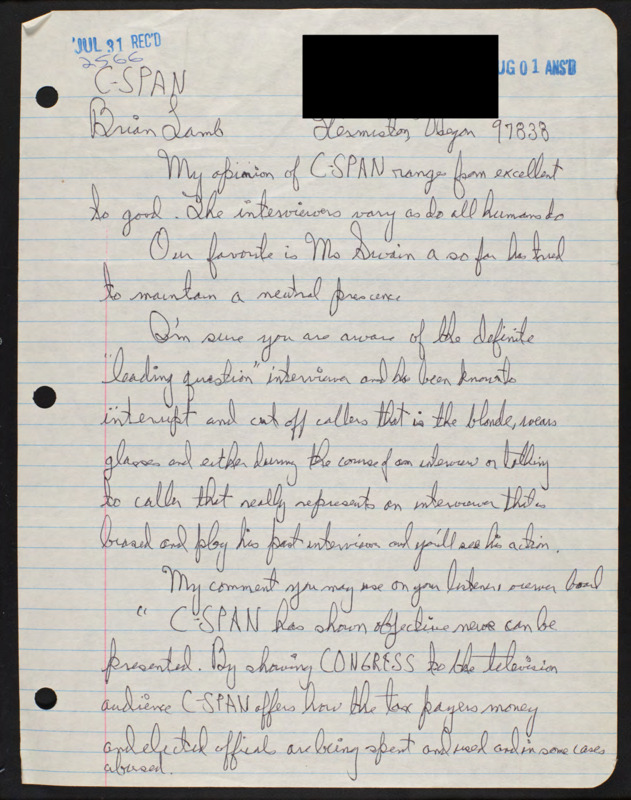 JUL 31 REC'D
UG 01 ANS'D
2566
C-SPAN
Brian Lamb Hermiston, Oregon 97838
My opinion of C-SPAN ranges from excellent
to good. The interviewers vary as do all humans do
Our favorite is Ms Swain a so far has tried
to maintain a neutral prescence
I'm sure you are aware of the definite
"leading question" interviewer and has been known to
interrupt and cut off callers that is the blonde, wears
glasses and either during the course of an interview or talking
to caller that really represents an interviewer that is
biased and play his past interviews and you'll see his action.
My comment you may use on your listeners viewer board
" C-SPAN has shown objective news can be
presented. By showing CONGRESS to the television
audience C-SPAN offers how the tax payers money
and elected officials are being spent and used and in some cases
abused.